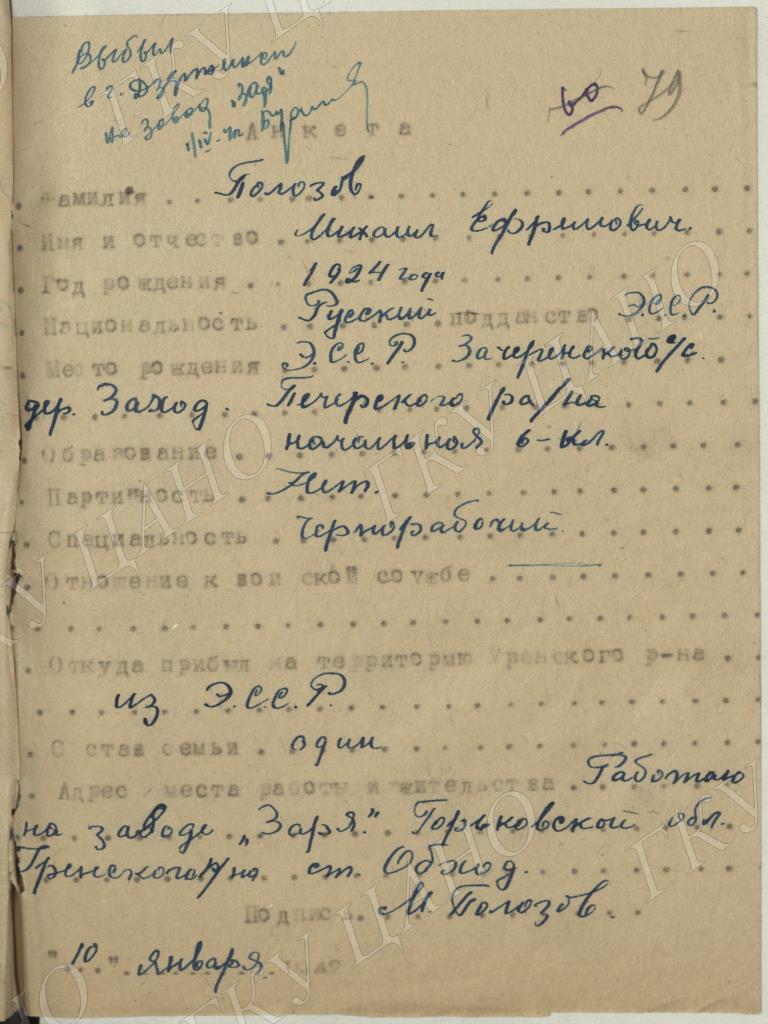 Выбыл
в г. Дзержинск
на завод „Заря"
1/IV-42
60 79
Анкета
Фамилия Полозов
Имя и отчество Михаил Ефримович.
Год рождения 1924 года
Национальность Русский подданство Э.С.С.Р.
Место рождения Э.С.С.Р. Зачеренского с/с.
дер. Заход. Печерского ра/на
Образование начальная 6-кл.
Партийность Нет.
Специальность Чернорабочий
Отношение к воинской службе
Откуда прибыл на территорию Уренского р-на
из Э.С.С.Р.
Состав семьи один
Адрес места работы и жительства Работаю
на заводе „Заря." Горьковской обл.
Уренского р/на ст. Обход.
Подпись М. Полозов.
"10" января 1942
ГКУ ЦАНО